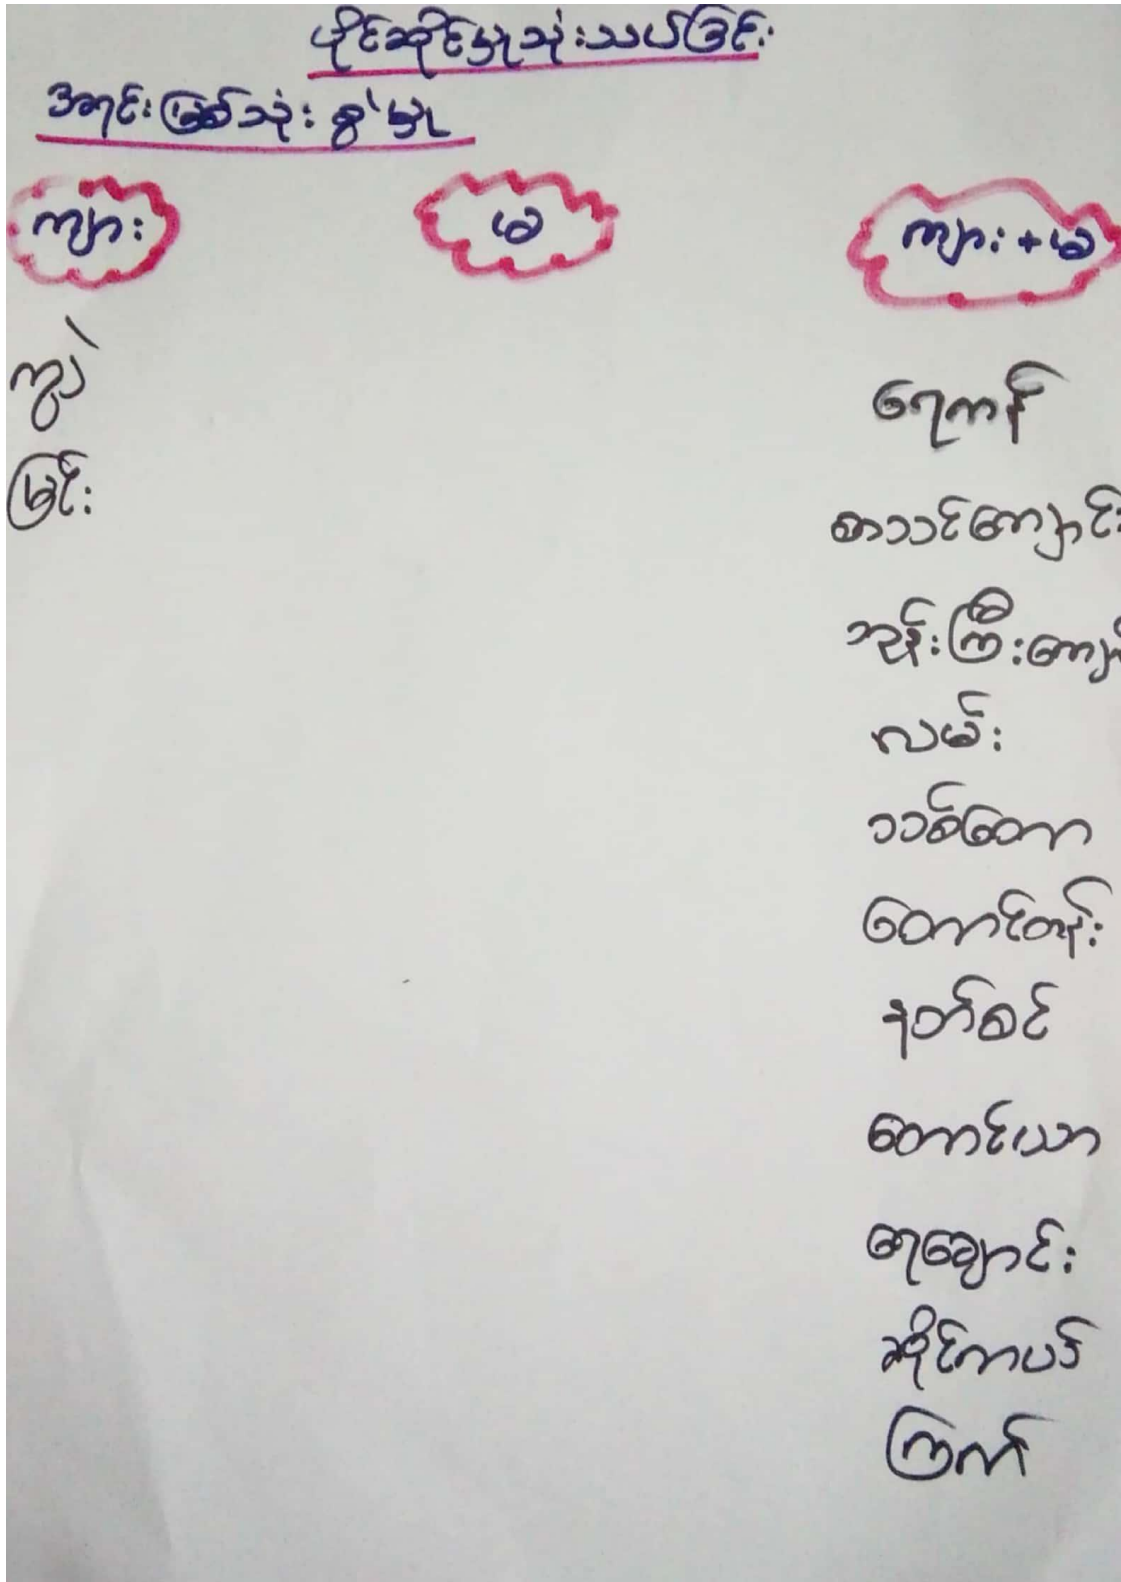 ပိုင်ဆိုင်မှုသုံးသပ်ခြင်း
အရင်းမြစ်သုံးစွဲမှု
ကျား မ ကျား + မ
ကျွဲ
ရေကန်
မြင်း
စာသင်ကျောင်း
ဘုန်းကြီးကျော
လမ်း
သစ်တော
တောင်တန်း
နတ်စင်
တောင်ယာ
ရေချောင်း
ဆိုင်ကယ်
ကြက်